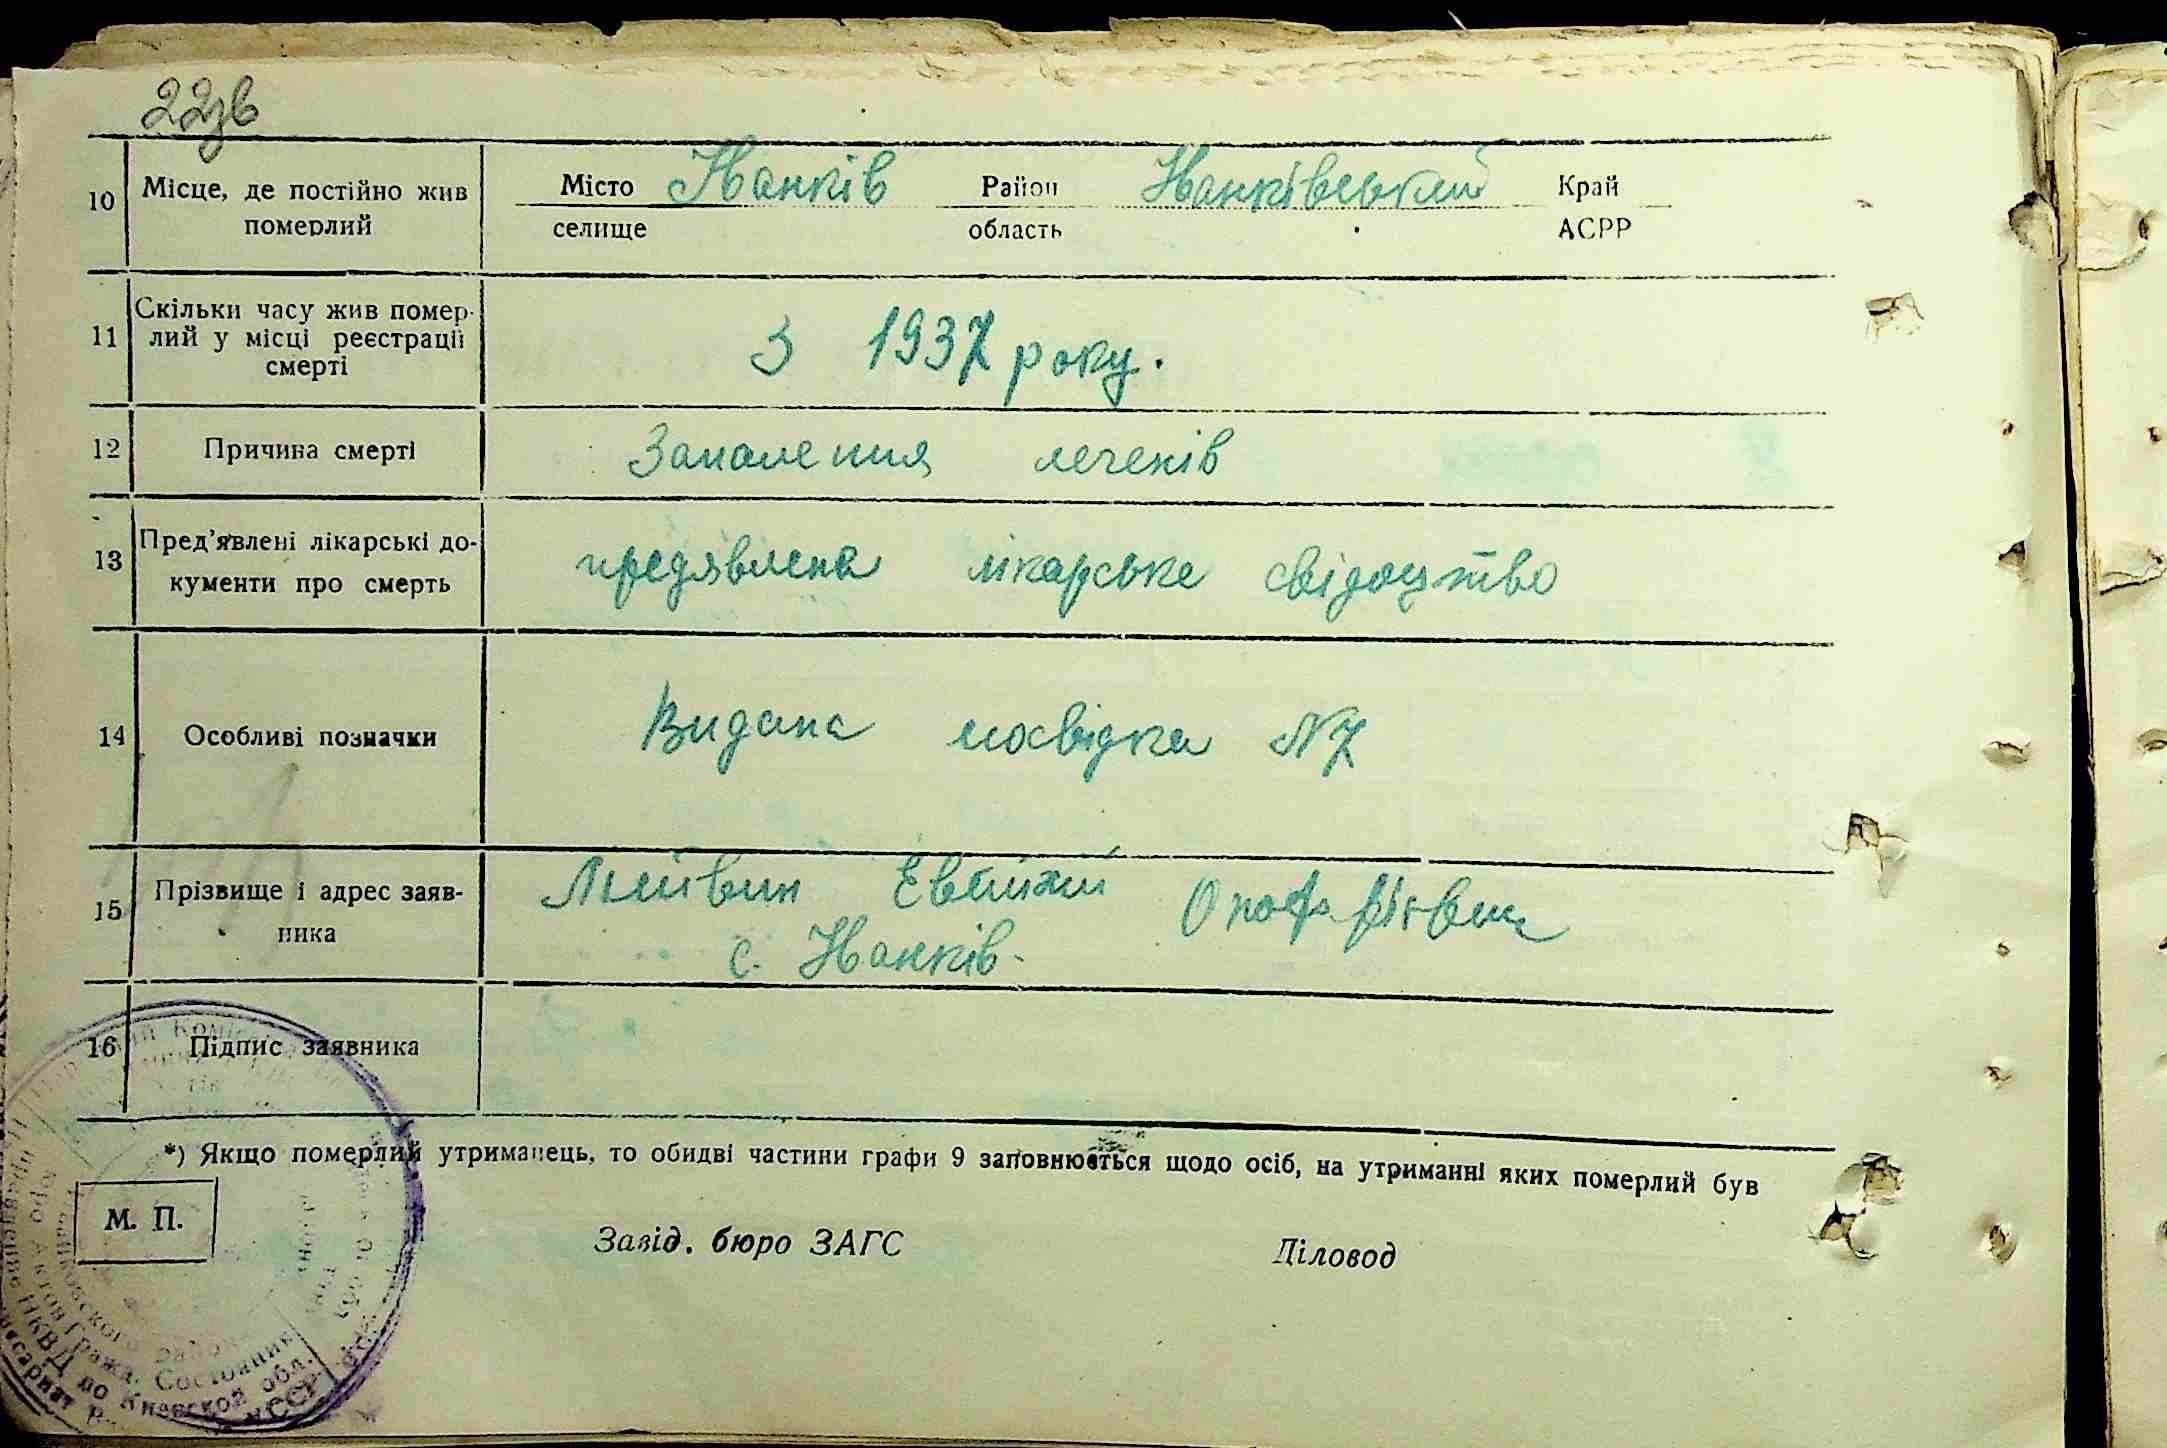 22зв
10 Місце, де постійно жив померлий Місто селище Іванків Район область Іванківський Край АСРР
11 Скільки часу жив померлий у місці реєстрації смерті З 1937 року.
12 Причина смерті Запалення легенів
13 Пред'явлені лікарські документи про смерть предявлена лікарське свідоцтво
14 Особливі позначки Видана посвідка N7
15 Прізвище і адрес заявника Литвин Євгіній
с. Іванків.
16 Підпис заявника
*) Якщо померлий утриманець, то обидві частини графи 9 заповнюється щодо осіб, на утриманні яких померлий був
М. П.
Завід. бюро ЗАГС Діловод
НКВД по Киевской обл.
Актов Гражд. Состояния